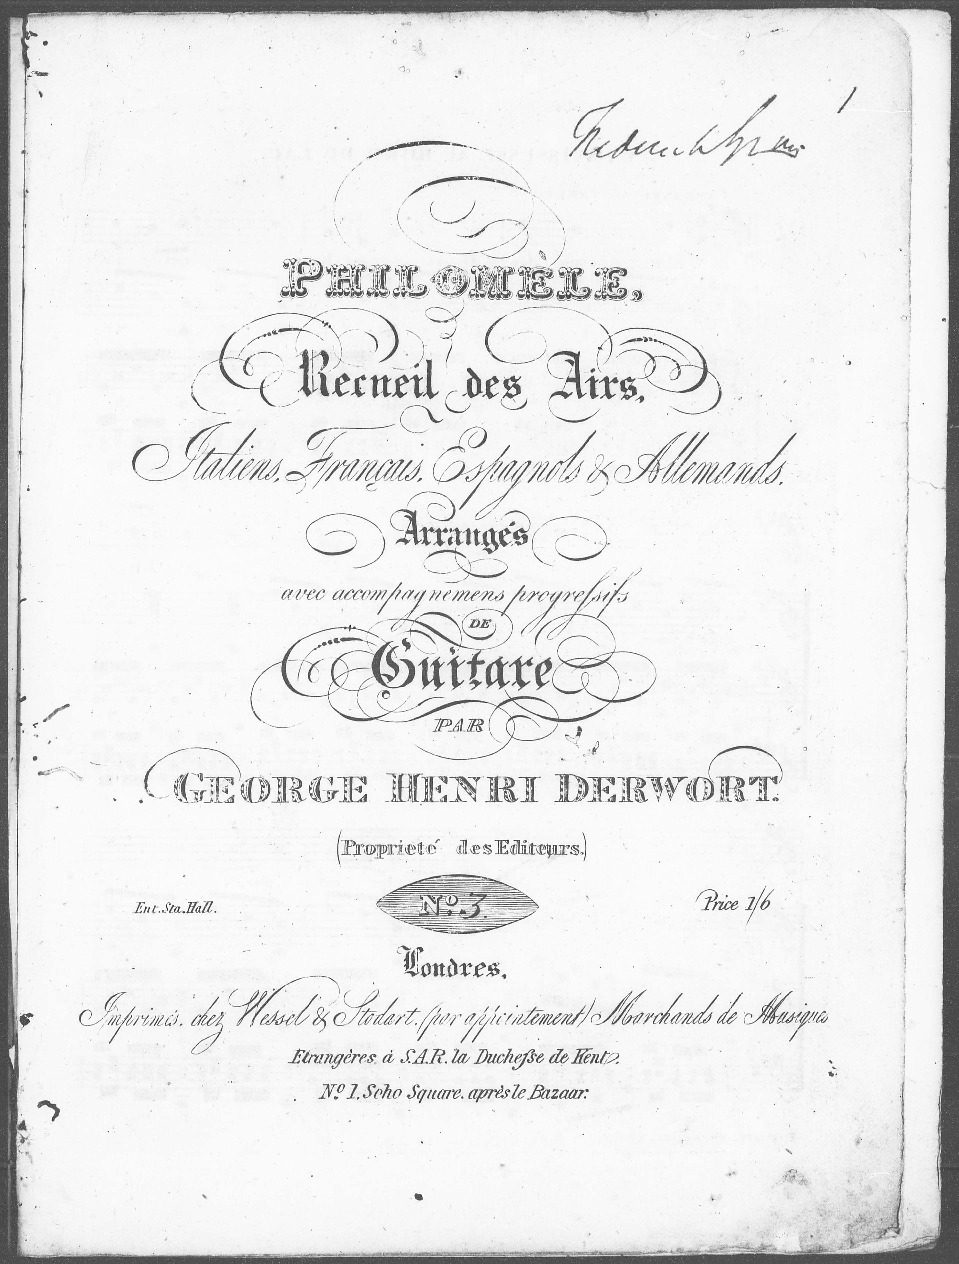 1
PHILOMELE,
Recueil des Airs,
Italiens, Français, Espagnols & Allemands,
Arrangés
avec accompagnemens progressifs
DE
Guitare
PAR
GEORGE HENRI DERWORT.
(Proprieté des Editeurs.)
Ent. Sta. Hall.
No. 3.
Price 1/6
Londres,
Imprimés chez Wessel & Stodart, (par appointement) Marchands de Musique
Etrangères, á S.A.R. la Duchesse de Kent
No. 1, Soho Square, après le Bazaar.